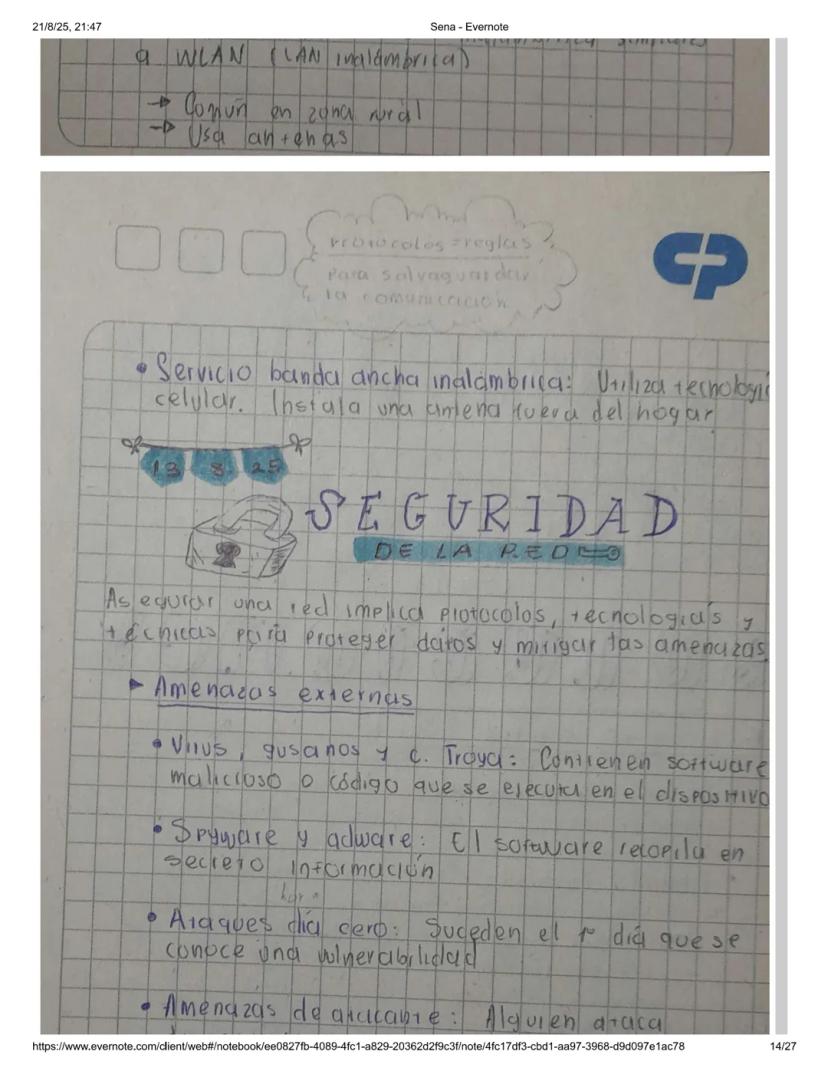 21/8/25, 21:47
Sena - Evernote
a WLAN (LAN inalámbrica)
→ Común en zona rural
→ Usa antenas
protocolos = reglas
para salvaguardar
la comunicación
CP
• Servicio banda ancha inalámbrica: Utiliza tecnologi
celular. Instala una antena fuera del hogar
13 8 25
SEGURIDAD
DE LA RED
Asegurar una red implica protocolos, tecnologías y
técnicas para proteger datos y mitigar las amenazas
► Amenazas externas
• Virus, gusanos y c. Troya: Contienen software
malicioso o código que se ejecuta en el dispositivo
• Spyware y adware: El software recopila en
secreto información
• Ataques día cero: Suceden el 1º día que se
conoce una vulnerabilidad
• Amenazas de atacante: Alguien ataca
https://www.evernote.com/client/web#/notebook/ee0827fb-4089-4fc1-a829-20362d2f9c3f/note/4fc17df3-cbd1-aa97-3968-d9d097e1ac78
14/27